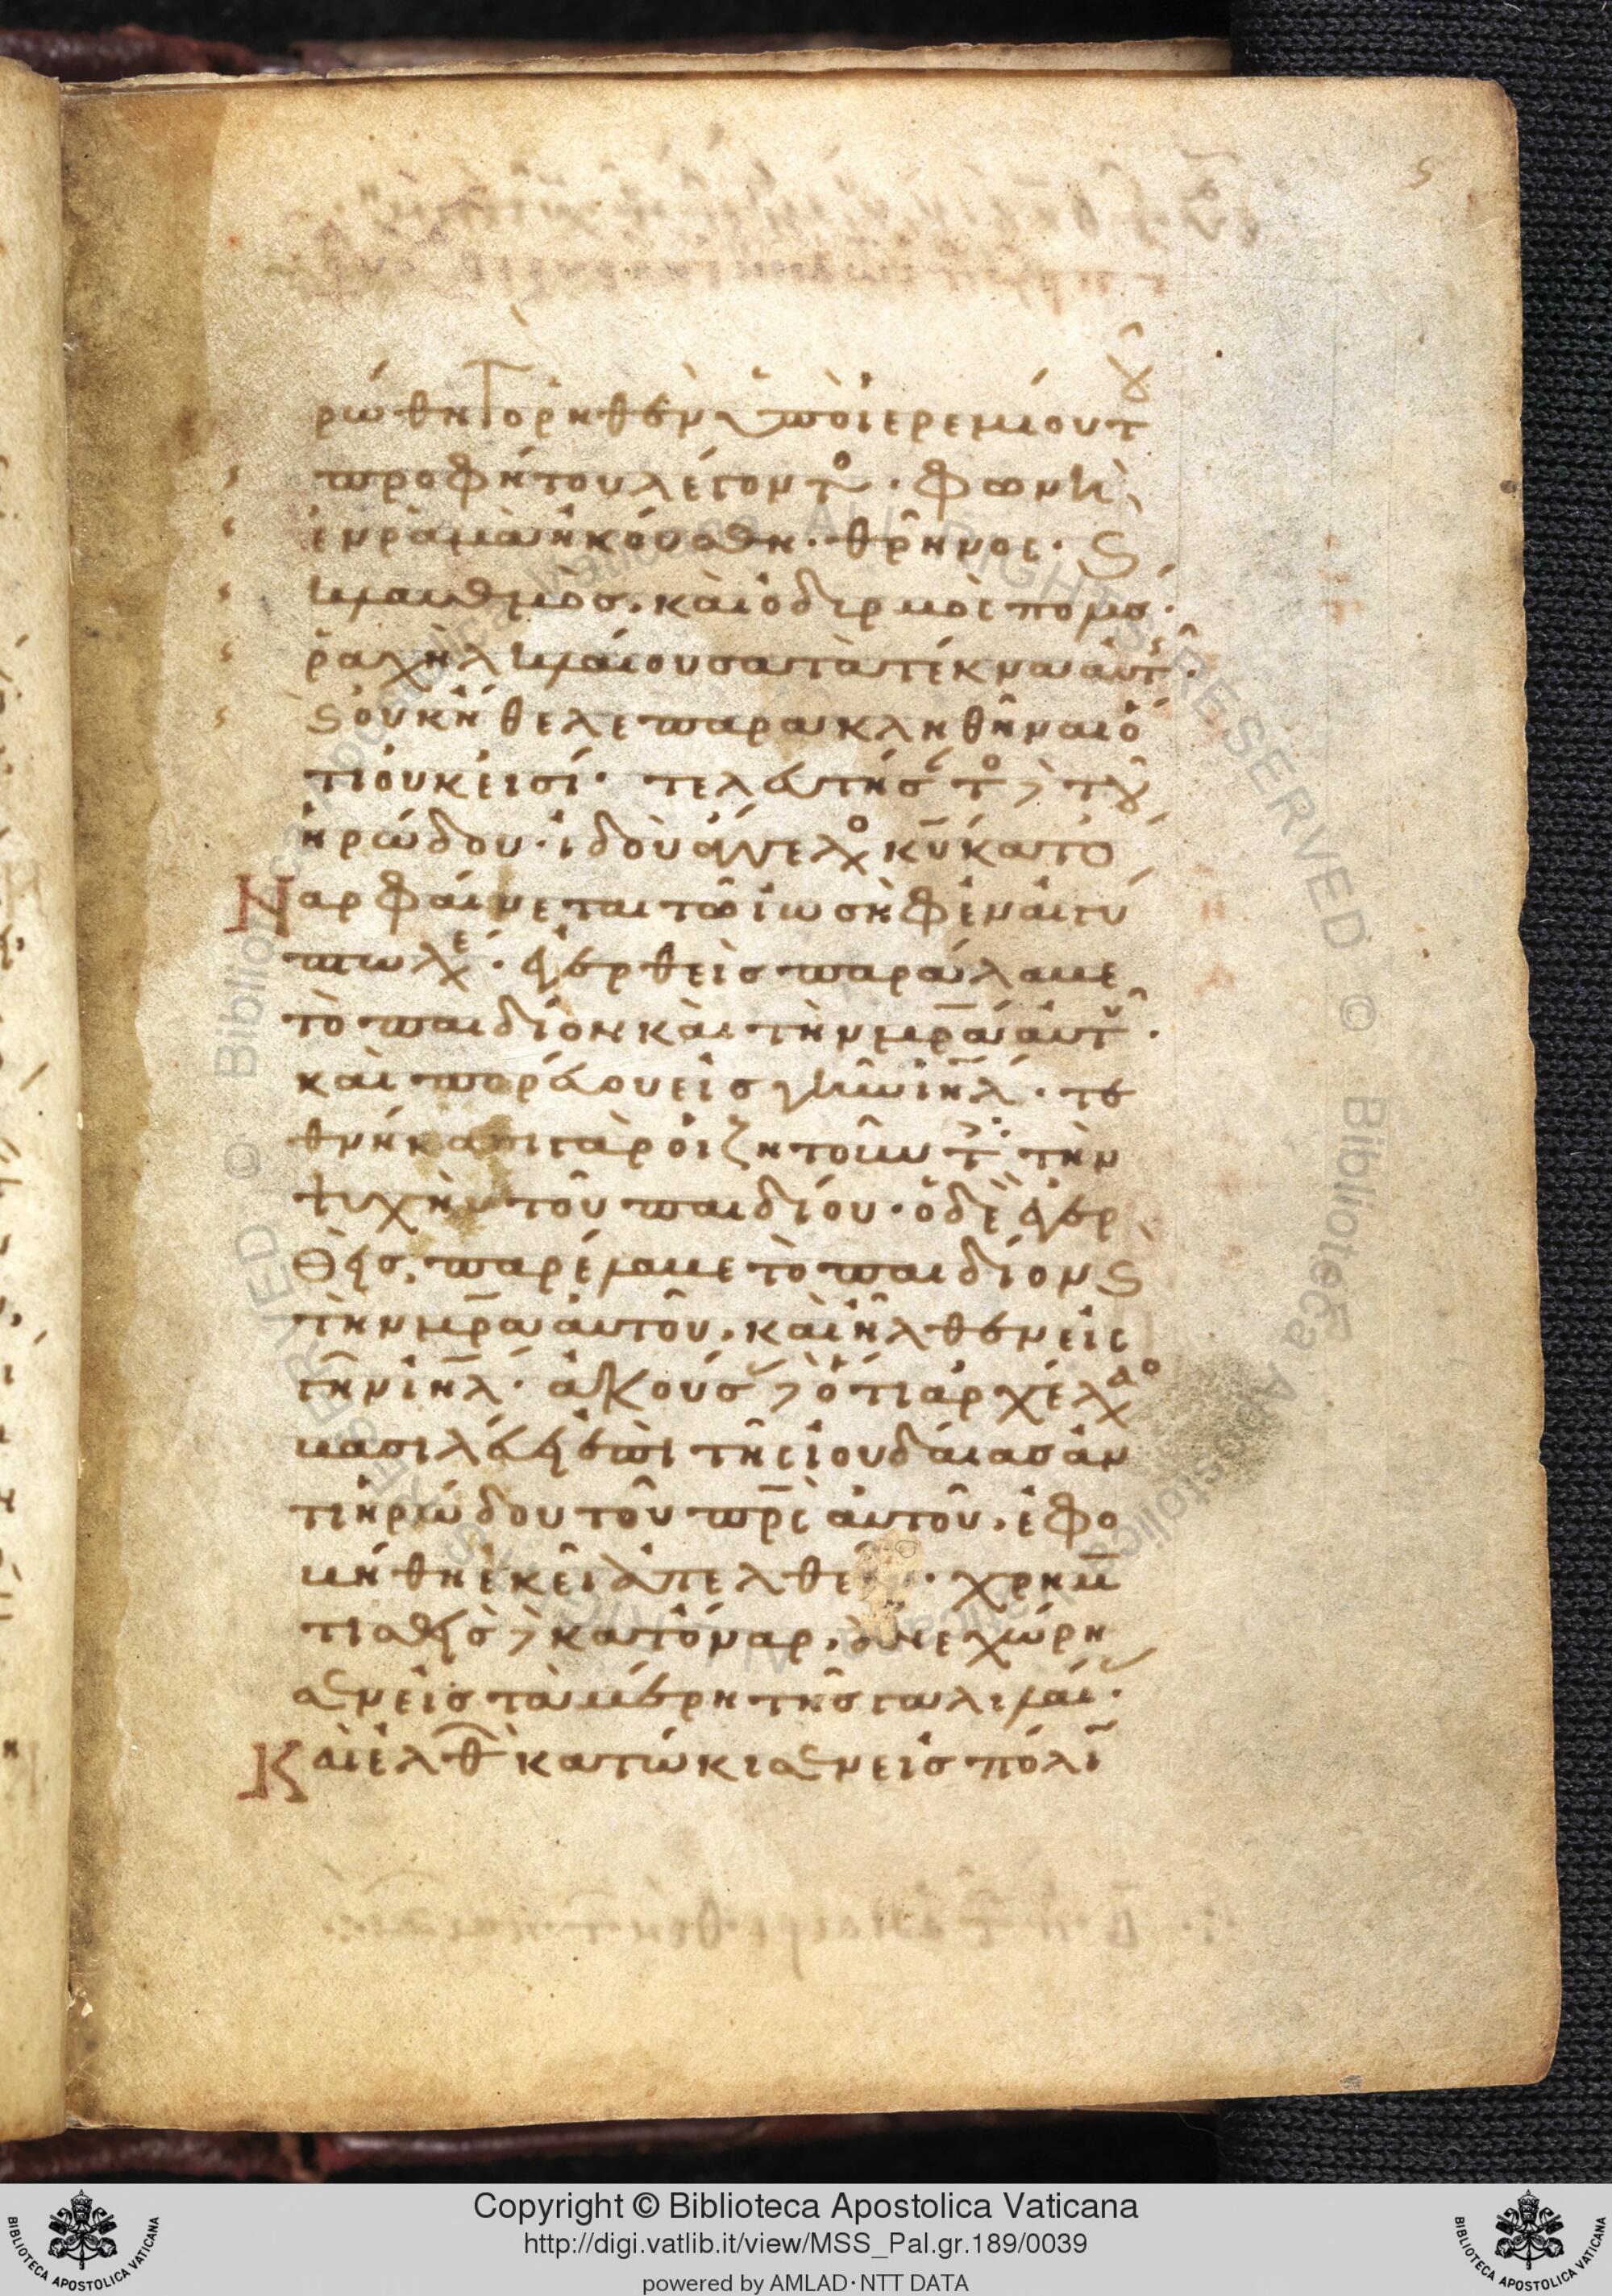 ρώθη τὸ ῥηθὲν ὑπὸ ἱερεμίου τοῦ
προφήτου λέγοντος· φωνὴ
ἐν ραμὰ ἠκούσθη· θρῆνος· ϛ
κλαυθμὸσ, καὶ ὀδυρμὸς πολύσ·
ῥαχὴλ κλαίουσα τὰ τέκνα αὐτῆς·
ϛ οὐκ ἤθελε παρακληθῆναι ὅ
τι οὐκ εἰσί· τελευτήσαντος δὲ τοῦ
ἡρώδου· ἰδοὺ ἄγγελος κυ κατ ὄ
ναρ φαίνεται τῶ ἰωσὴφ ἐν αἰγύ
πτω λέγων· ἐγερθεὶς παράλαβε
τὸ παιδίον καὶ τὴν μρα αὐτοῦ·
καὶ πορεύου εἰσ γῆν ιηλ· τε
θνήκασι γὰρ οἱ ζητοῦντες τὴν
ψυχὴν τοῦ παιδίου· ὁ δὲ ἐγερ
θεὶσ, παρέλαβε τὸ παιδίον ϛ
τὴν μρα αὐτοῦ, καὶ ἦλθεν εἰς
γῆν ιηλ· ἀκούσας δὲ ὅτι ἀρχέλαος
βασιλεύει ἐπὶ τῆς ἰουδαίας ἀν
τὶ ἡρώδου τοῦ πρς αὐτοῦ, ἐφο
βήθη ἐκεῖ ἀπελθεῖν· χρημα
τισθεὶσ δὲ κατ ὄναρ, ἀνεχώρη
σεν εἰσ τὰ μέρη τῆσ γαλιλαίας·
Καὶ ἐλθὼν κατώκισεν εἰσ πόλιν
Copyright © Biblioteca Apostolica Vaticana
http://digi.vatlib.it/view/MSS_Pal.gr.189/0039
powered by AMLAD·NTT DATA
BIBLIOTECA APOSTOLICA VATICANA
BIBLIOTECA APOSTOLICA VATICANA